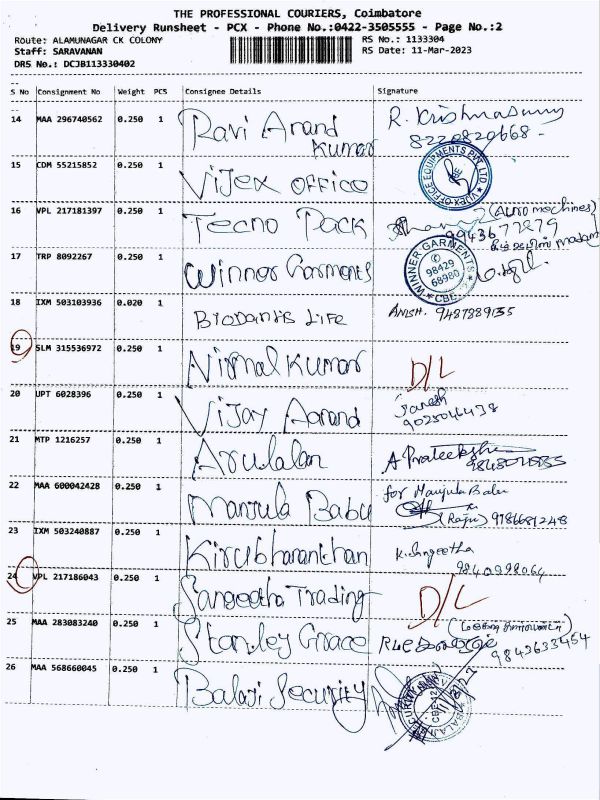 THE PROFESSIONAL COURIERS, Coimbatore
Delivery Runsheet - PCX - Phone No.:0422-3505555 - Page No.:2
Route: ALAMUNAGAR CK COLONY RS No.: 1133304
Staff: SARAVANAN RS Date: 11-Mar-2023
DRS No.: DCJB113330402
S No Consignment No Weight PCS Consignee Details Signature
14 MAA 296740562 0.250 1 Ravi Anand Kumar R. Krishnasamy
8220820668
15 CDM 55215852 0.250 1 Vijex office VIJEX OFFICE EQUIPMENTS PVT LTD CBE
16 VPL 217181397 0.250 1 Tecno Pack (Auro mechines)
9943677879
17 TRP 8092267 0.250 1 Winner Garments WINNER GARMENTS 98429 68980 CBE
18 IXM 503103936 0.020 1 Biodantis Life ANISH. 9487889135
19 SLM 315536972 0.250 1 Nirmal Kumar D/L
20 UPT 6028396 0.250 1 Vijay Aanand
9025046438
21 MTP 1216257 0.250 1 Arulalan A Prateeksha
22 MAA 600042428 0.250 1 Manjula Babu for Manjula Babu
(Raju) 9786681248
23 IXM 503240887 0.250 1 Kirubharanthan K. Sangeetha
9840998064
24 VPL 217186043 0.250 1 Sangeetha Trading D/L
25 MAA 283083240 0.250 1 Stanley Grace
9842633454
26 MAA 568660045 0.250 1 Balaji Security